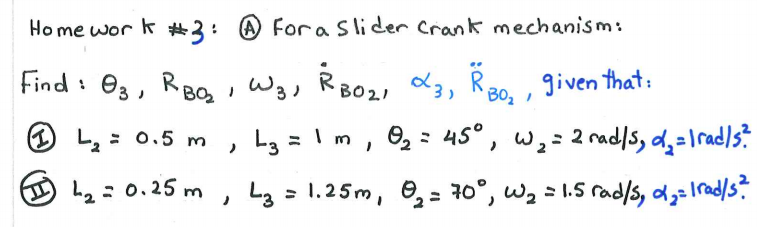 Homework #3: Ⓐ For a Slider Crank mechanism:
Find: θ₃, R_BO₂, ω₃, Ṙ_BO₂, α₃, R̈_BO₂, given that:
Ⓘ L₂ = 0.5 m, L₃ = 1 m, θ₂ = 45°, ω₂ = 2 rad/s, α₂=1rad/s².
Ⅱ L₂ = 0.25 m, L₃ = 1.25m, θ₂ = 70°, ω₂ = 1.5 rad/s, α₂=1rad/s².